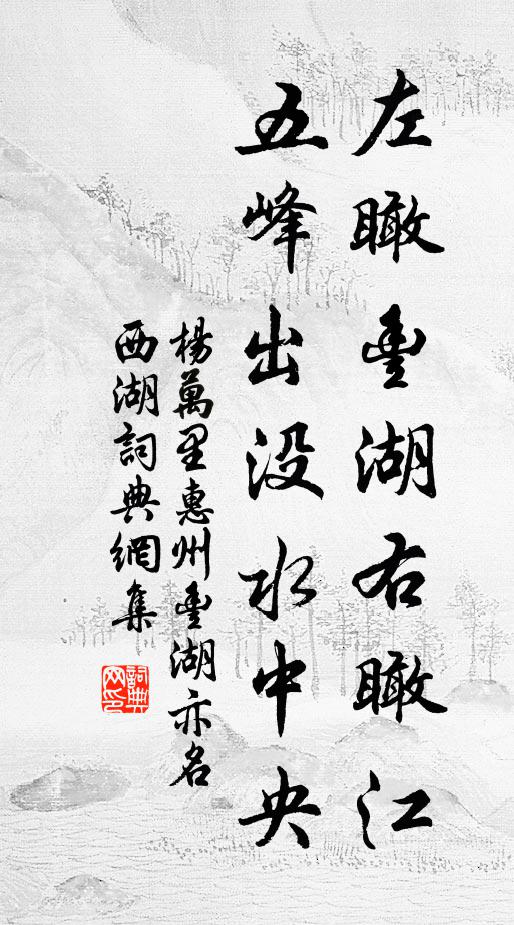 左瞰豊湖右瞰江
五峰出没水中央
楊萬里惠州豊湖亦名
西湖詞典網集
詞典
网印